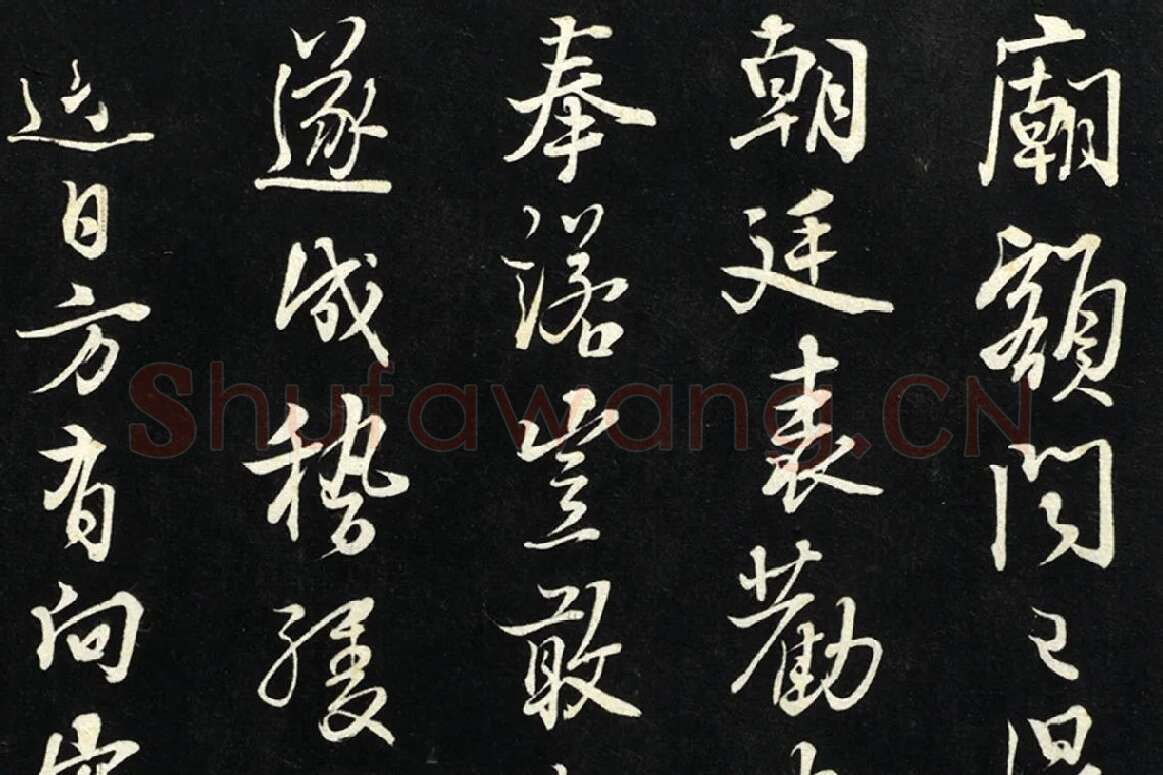 廟額聞已得
朝廷表勸
奉諾豈敢
遂成稽緩
近日方有向
Shufawang.CN